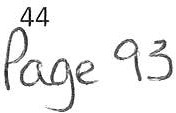 44
Page 93